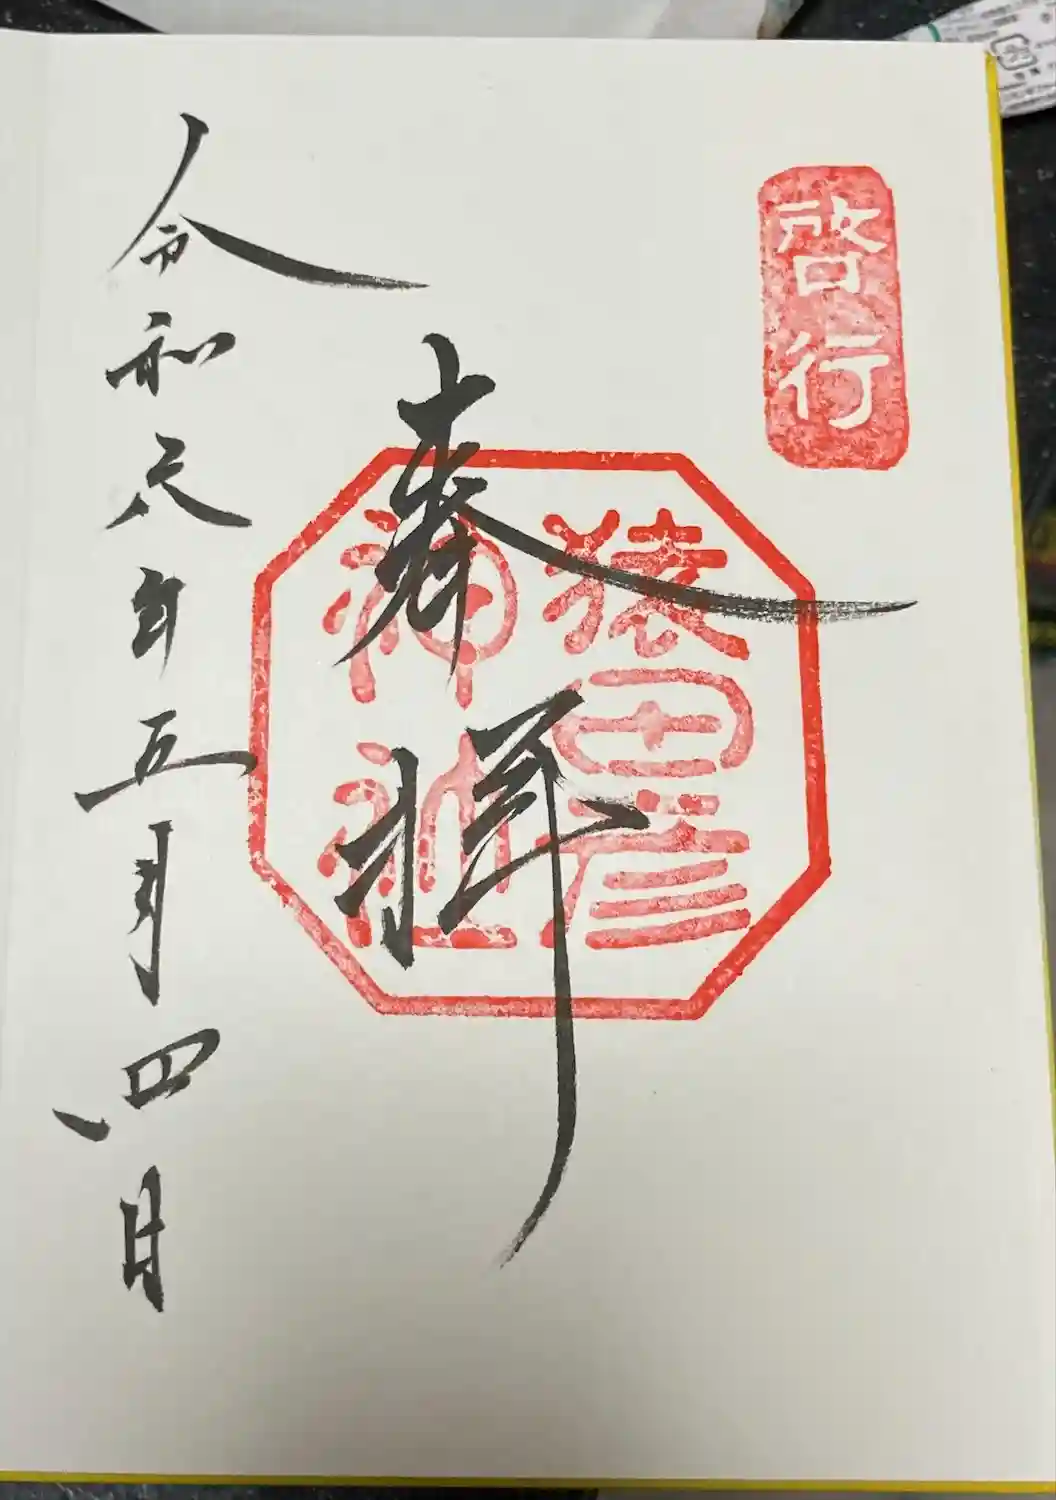 啓行
奉拝
猿田彦
神社
令和元年五月四日